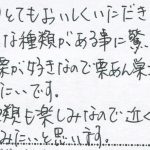 とてもおいしくいただき
な種類がある事に驚
栗が好きなので栗あん
たいです。
類も楽しみなので近く
みたいと思います。